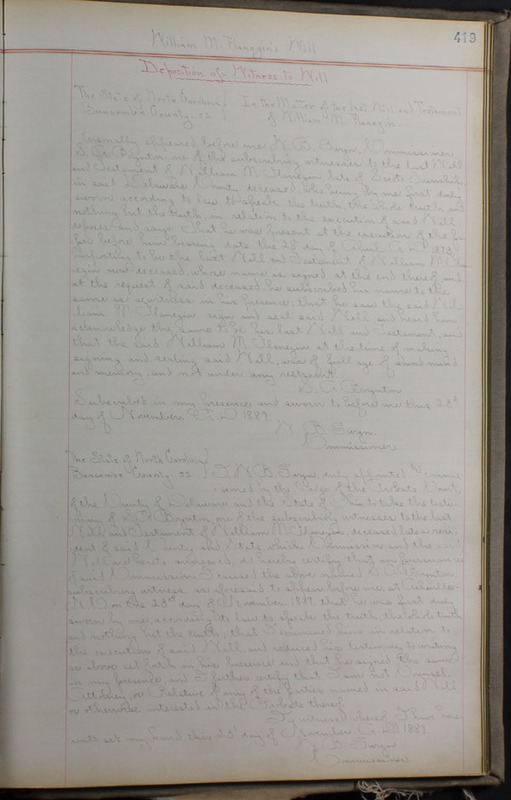 419
William M. Flanegin's Will
Deposition of Witness to Will
The State of North Carolina } In the Matter of the last Will and Testament
Buncombe County. ss } of William M. Flanegin
Personally appeared before me N. B.
one of the subscribing witnesses to the last Will
and Testament of William M. Flanegin late of Township
in said Delaware County, deceased, who being by me first duly
sworn according to law, to speak the truth the whole truth, and
nothing but the truth, in relation to the execution of said Will
deposes and says: That he was present at the execution of the
before him bearing date the 28 day of April A.D.
purporting to be the last Will and Testament of William M.
now deceased, whose name is signed at the end thereof and
at the request of said deceased he subscribed his name to the
same as a witness in his presence; that he saw the said Wil-
liam M. Flanegin sign and seal said Will and heard him
acknowledge the same to be his last Will and Testament, and
that the said William M. Flanegin at the time of making
signing and sealing said Will, was of full age, of sound mind
and memory, and not under any restraint.
Boynton
Subscribed in my presence and sworn to before me this 23d
day of November A.D. 1889
N. B.
Commissioner
The State of North Carolina }
Buncombe County ss } I, N. B. duly appointed
by the Judge of the Probate Court,
of the County of Delaware and the State of Ohio to take the testi-
mony of Boynton, one of the subscribing witnesses to the last
Will and Testament of William M. Flanegin, deceased, late a resi-
dent of said County and State, which Commission and the said
Will are hereto annexed, do hereby certify that in pursuance
of said Commission I caused the above named Boynton
subscribing witness as aforesaid to appear before me, at
on the 23d day of November, 1889, that he was first duly
sworn by me, according to law to speak the truth, the whole truth
and nothing but the truth, that I examined him in relation to
the execution of said Will, and reduced his testimony to writing
as above set forth in his presence and that he signed the same
in my presence, and I further certify that I am not Counsel,
Attorney, or Relative of any of the parties named in said Will
or otherwise interested in the Probate thereof.
In witness whereof I have here
unto set my hand this 23d day of November A.D. 1889.
N. B.
Commissioner